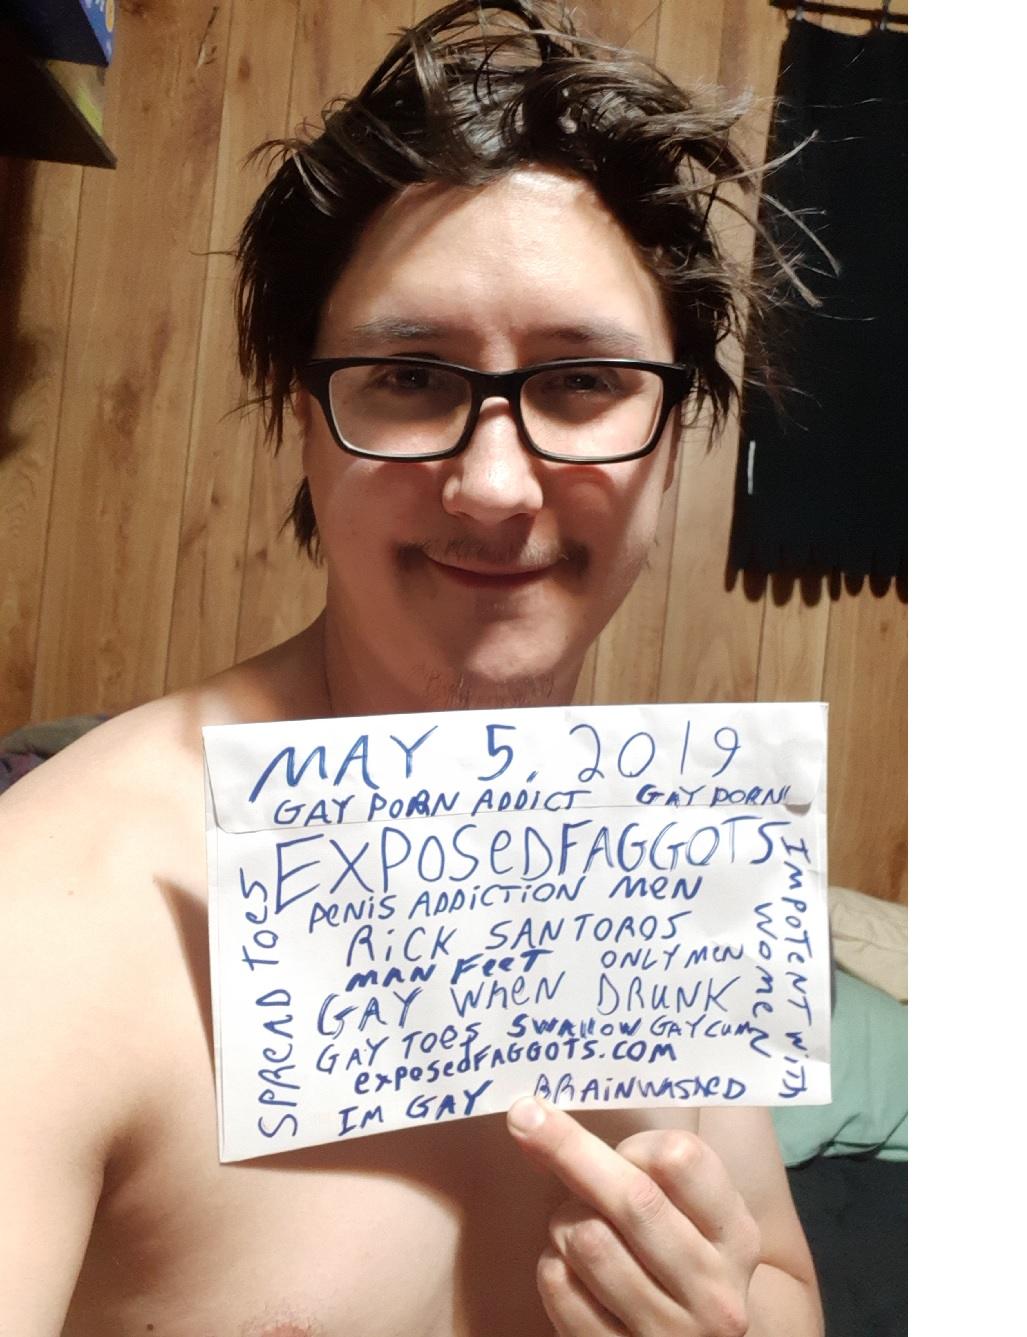 MAY 5, 2019
GAY PORN ADDICT GAY PORN!
EXPOSEDFAGGOTS
PENIS ADDICTION MEN
RICK SANTOROS
MAN FEET ONLY MEN
GAY WHEN DRUNK
GAY TOES SWALLOW GAY CUM
exposedFAGGOTS.COM
IM GAY BRAINWASHED
SPREAD TOES
IMPOTENT WITH
WOMEN